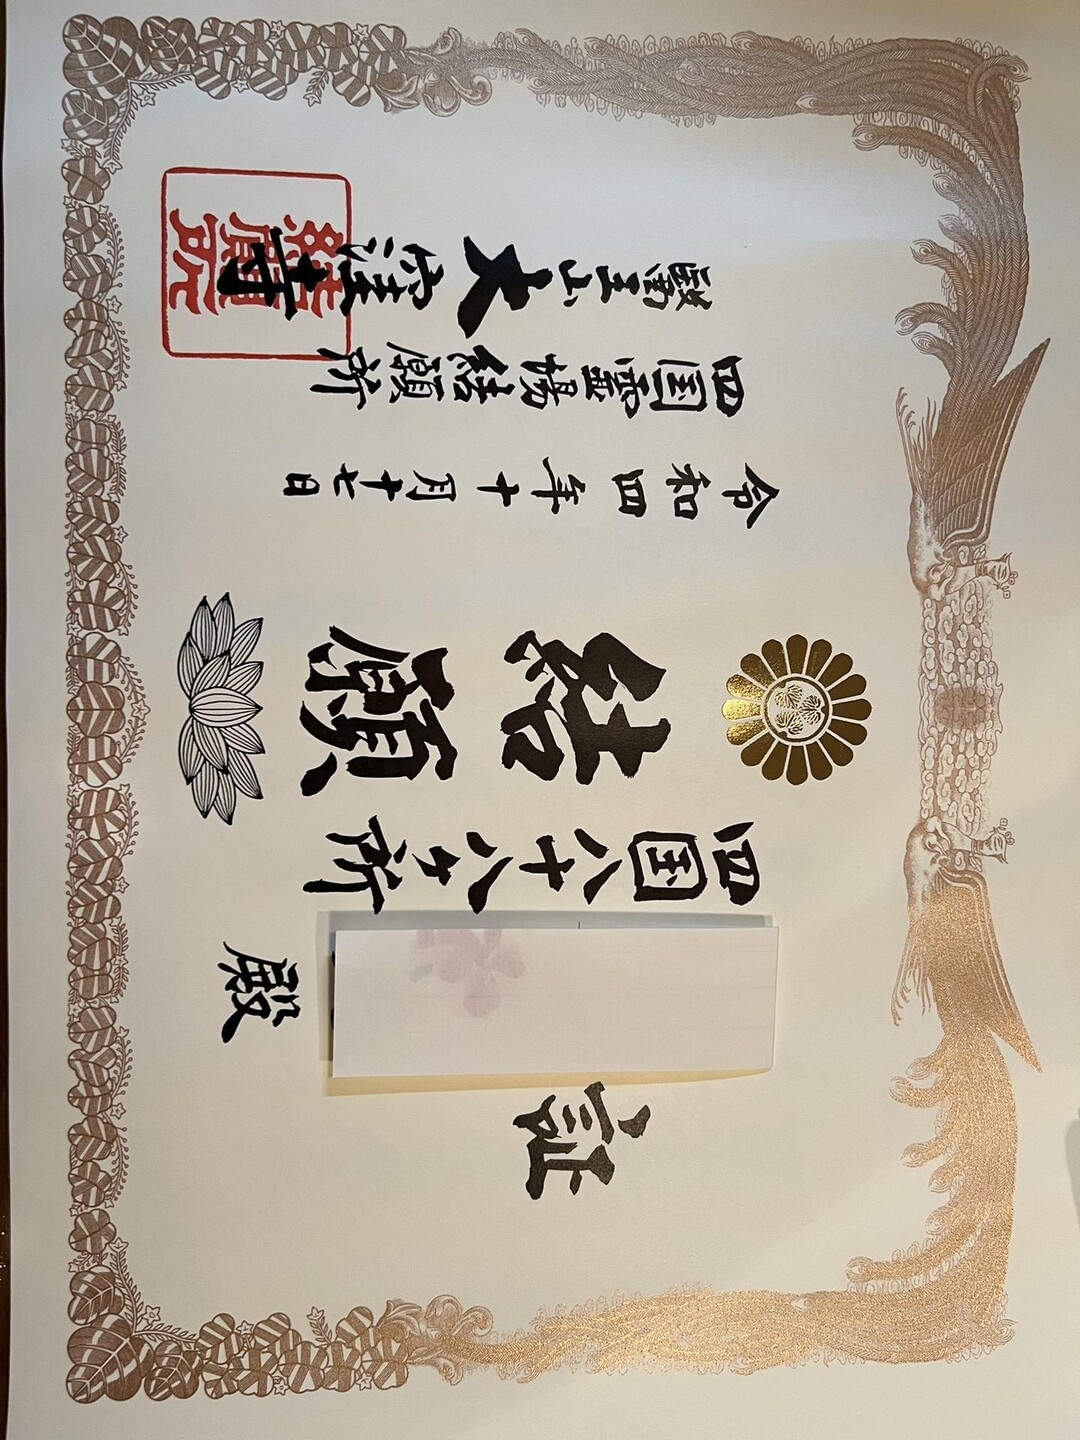 証
殿
四国八十八ヶ所
結願
令和四年十月十七日
四国霊場結願所
醫王山大窪寺
結願所